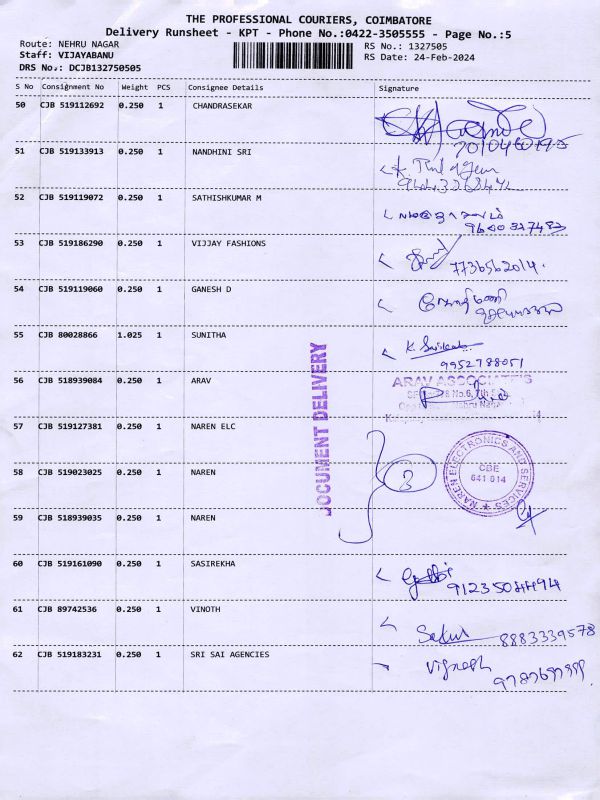 THE PROFESSIONAL COURIERS, COIMBATORE
Delivery Runsheet - KPT - Phone No.:0422-3505555 - Page No.:5
Route: NEHRU NAGAR
RS No.: 1327505
Staff: VIJAYABANU
RS Date: 24-Feb-2024
DRS No.: DCJB132750505
S No Consignment No Weight PCS Consignee Details Signature
50 CJB 519112692 0.250 1 CHANDRASEKAR
51 CJB 519133913 0.250 1 NANDHINI SRI
52 CJB 519119072 0.250 1 SATHISHKUMAR M
9600327483
53 CJB 519186290 0.250 1 VIJJAY FASHIONS
7736562014.
54 CJB 519119060 0.250 1 GANESH D
55 CJB 80028866 1.025 1 SUNITHA
K.
9952788051
DOCUMENT DELIVERY
56 CJB 518939084 0.250 1 ARAV
ARAV ASSOCIATES
57 CJB 519127381 0.250 1 NAREN ELC
NAREN ELECTRONICS AND SERVICES ★
CBE
641 014
58 CJB 519023025 0.250 1 NAREN
3
59 CJB 518939035 0.250 1 NAREN
60 CJB 519161090 0.250 1 SASIREKHA
61 CJB 89742536 0.250 1 VINOTH
8883339578
62 CJB 519183231 0.250 1 SRI SAI AGENCIES
Vignesh